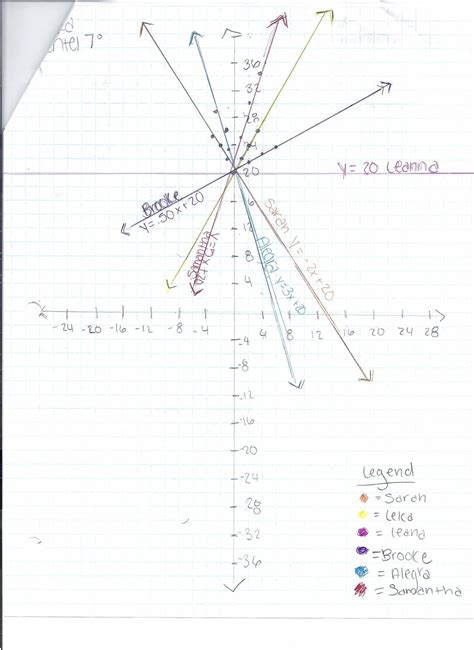 7°
36
32
28
24
20
y = 20 Leanna
Brooke
y = .50x + 20
Sarah y = -2x + 20
Samantha
Alegra y = 3x + 20
8
4
-24 -20 -16 -12 -8 -4 4 8 12 16 20 24 28
-4
-8
-12
-16
-20
-24
-28
-32
-36
Legend
= Sarah
= Leica
= Leana
= Brooke
= Alegra
= Samantha